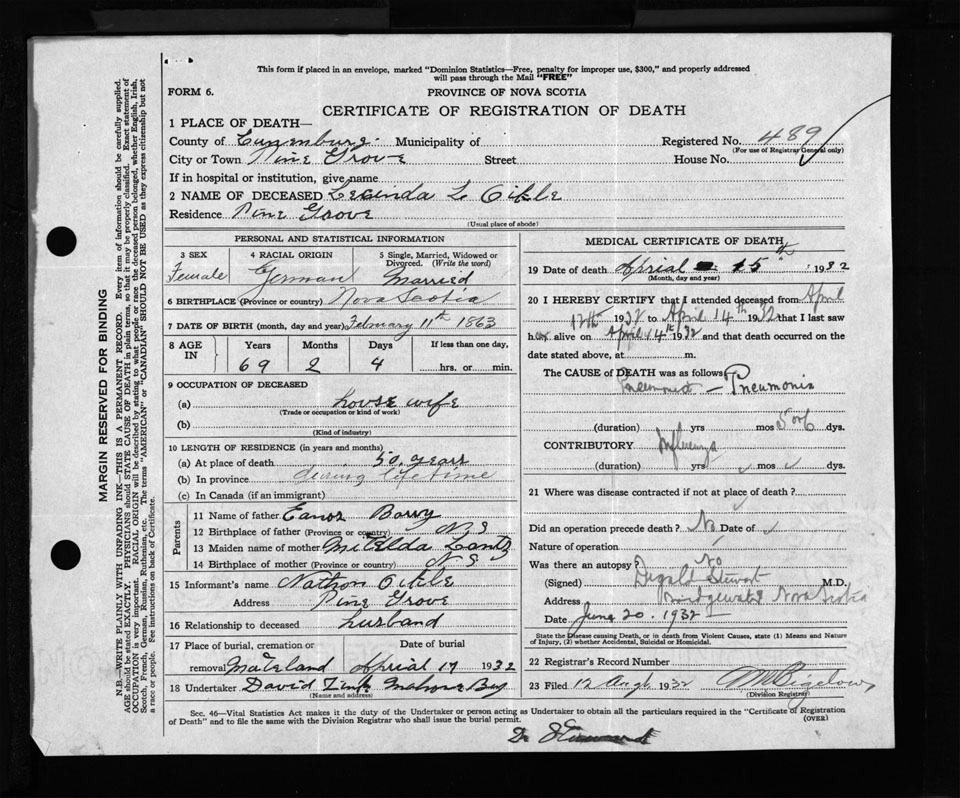 This form if placed in an envelope, marked "Dominion Statistics—Free, penalty for improper use, $300," and properly addressed
will pass through the Mail "FREE"
FORM 6.
PROVINCE OF NOVA SCOTIA
CERTIFICATE OF REGISTRATION OF DEATH
1 PLACE OF DEATH—
County of Lunenburg Municipality of
Registered No. 489
(For use of Registrar General only)
City or Town Pine Grove Street House No.
If in hospital or institution, give name
2 NAME OF DECEASED L Oikle
Residence Pine Grove
(Usual place of abode)
PERSONAL AND STATISTICAL INFORMATION
3 SEX 4 RACIAL ORIGIN 5 Single, Married, Widowed or
Divorced. (Write the word)
Female German Married
6 BIRTHPLACE (Province or country) Nova Scotia
7 DATE OF BIRTH (month, day and year) February 11th 1863
8 AGE IN Years Months Days If less than one day,
69 2 4 hrs. or min.
9 OCCUPATION OF DECEASED
(a) house wife
(Trade or occupation or kind of work)
(b)
(Kind of industry)
10 LENGTH OF RESIDENCE (in years and months)
(a) At place of death 50 years
(b) In province during life time
(c) In Canada (if an immigrant)
Parents
11 Name of father
12 Birthplace of father (Province or country) N. S
13 Maiden name of mother Lantz
14 Birthplace of mother (Province or country) N S
15 Informant's name Nathon Oikle
Address Pine Grove
16 Relationship to deceased husband
17 Place of burial, cremation or Date of burial
removal Mateland Aprial 17 1932
18 Undertaker David Zink Mahone Bay
(Name and address)
MEDICAL CERTIFICATE OF DEATH
19 Date of death Aprial 15th 1932
(Month, day and year)
20 I HEREBY CERTIFY that I attended deceased from April
12th 1932 to April 14th 1932 that I last saw
h er alive on April 14th 1932 and that death occurred on the
date stated above, at m.
The CAUSE of DEATH was as follows
Pneumonia
(duration) yrs mos 5 or 6 dys.
CONTRIBUTORY Influenza
(duration) yrs mos dys.
21 Where was disease contracted if not at place of death?
Did an operation precede death? No Date of
Nature of operation
Was there an autopsy? No
(Signed) Stewart M.D.
Address Bridgewater Nova Scotia
Date June 20. 1932
State the Disease causing Death, or in death from Violent Causes, state (1) Means and Nature
of Injury, (2) whether Accidental, Suicidal or Homicidal.
22 Registrar's Record Number
23 Filed 12 Aug 1932
(Division Registrar)
Sec. 46—Vital Statistics Act makes it the duty of the Undertaker or person acting as Undertaker to obtain all the particulars required in the "Certificate of Registration
of Death" and to file the same with the Division Registrar who shall issue the burial permit. (OVER)
Dr
MARGIN RESERVED FOR BINDING
N.B.—WRITE PLAINLY WITH UNFADING INK—THIS IS A PERMANENT RECORD. Every item of information should be carefully supplied.
AGE should be stated EXACTLY. PHYSICIANS should STATE CAUSE OF DEATH in plain terms, so that it may be properly classified. Exact statement of
OCCUPATION is very important. RACIAL ORIGIN will be described by stating to what people or race the deceased person belonged, whether English, Irish,
Scotch, French, German, Russian, Ruthenian, etc. The terms "AMERICAN" or "CANADIAN" SHOULD NOT BE USED as they express citizenship but not
a race or people. See instructions on back of Certificate.